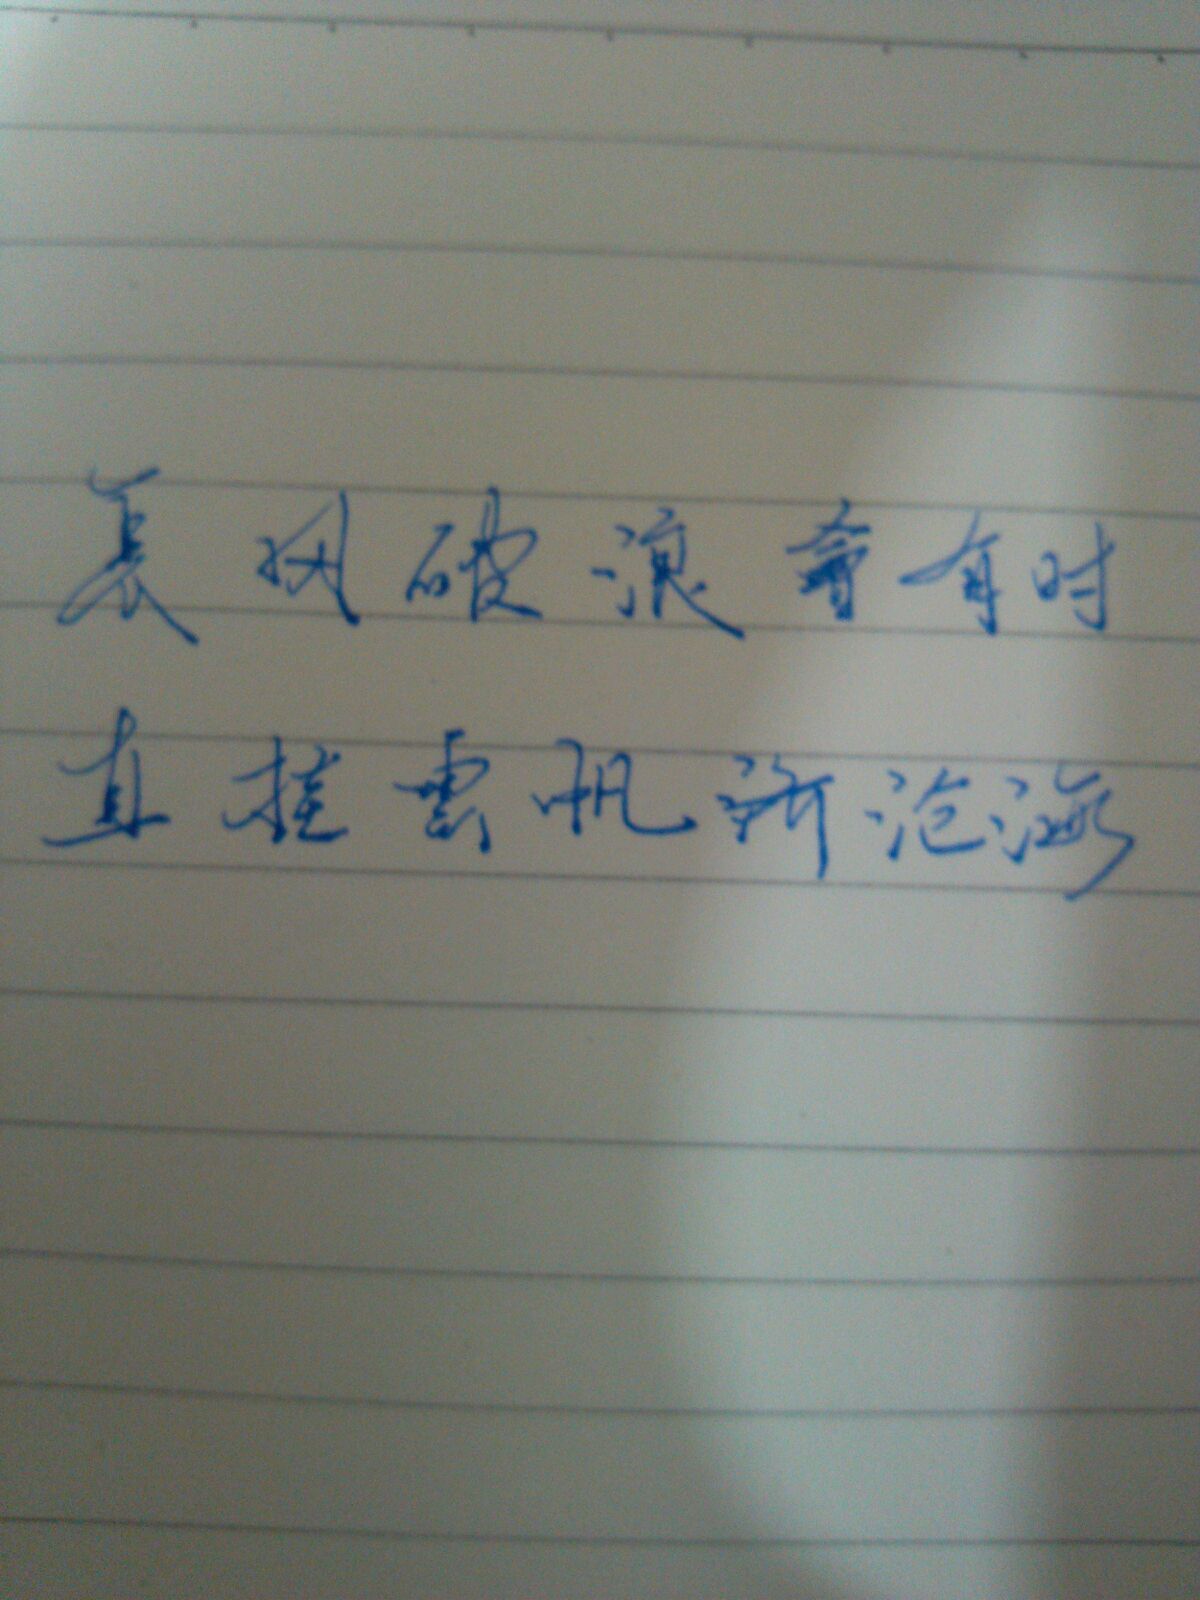 長风破浪會有时
直挂雲帆济沧海